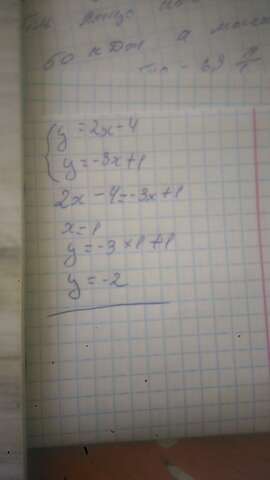 60 кДж а
{y = 2x - 4
{y = -3x + 1
2x - 4 = -3x + 1
x = 1
y = -3 × 1 + 1
y = -2